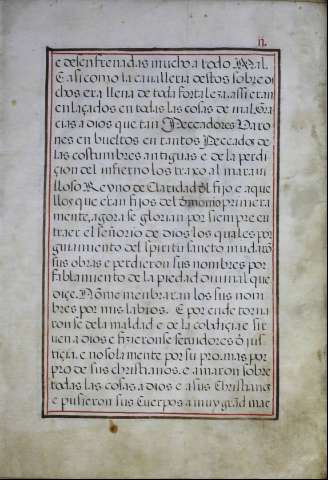 II.
e desenfrenadas mucho a todo Mal.
E asi como la cavalleria destos sobre di
chos era llena de toda fortaleza. assi eran
enlaçados en todas las cosas de mal, gra
cias a dios que tan Peccadores Varo
nes en bueltos en tantos Peccados de
las costumbres antiguas e de la perdi
çion del infierno los traxo al maravi
lloso Reyno de Claridad dl fijo e aque
llos que eran fijos del demonio primera
mente, agora se glorian por siempre en
traer el señorio de dios los quales por
guiamiento del spiritu sancto mudarō
sus obras e perdieron sus nombres por
fablamiento de la piedad divinal que
diçe. Nō me membraran los sus nom
bres por mis labros. E por ende torna
ronse de la maldad e de la cobdiçia e sir
ven a dios e fizieronse servidores d jus
tiçia. e no sola mente por su pro. mas por
pro de sus christianos. e amaron sobre
todas las cosas a dios e a sus Christianos
e pusieron sus Cuerpos a muy grād mar